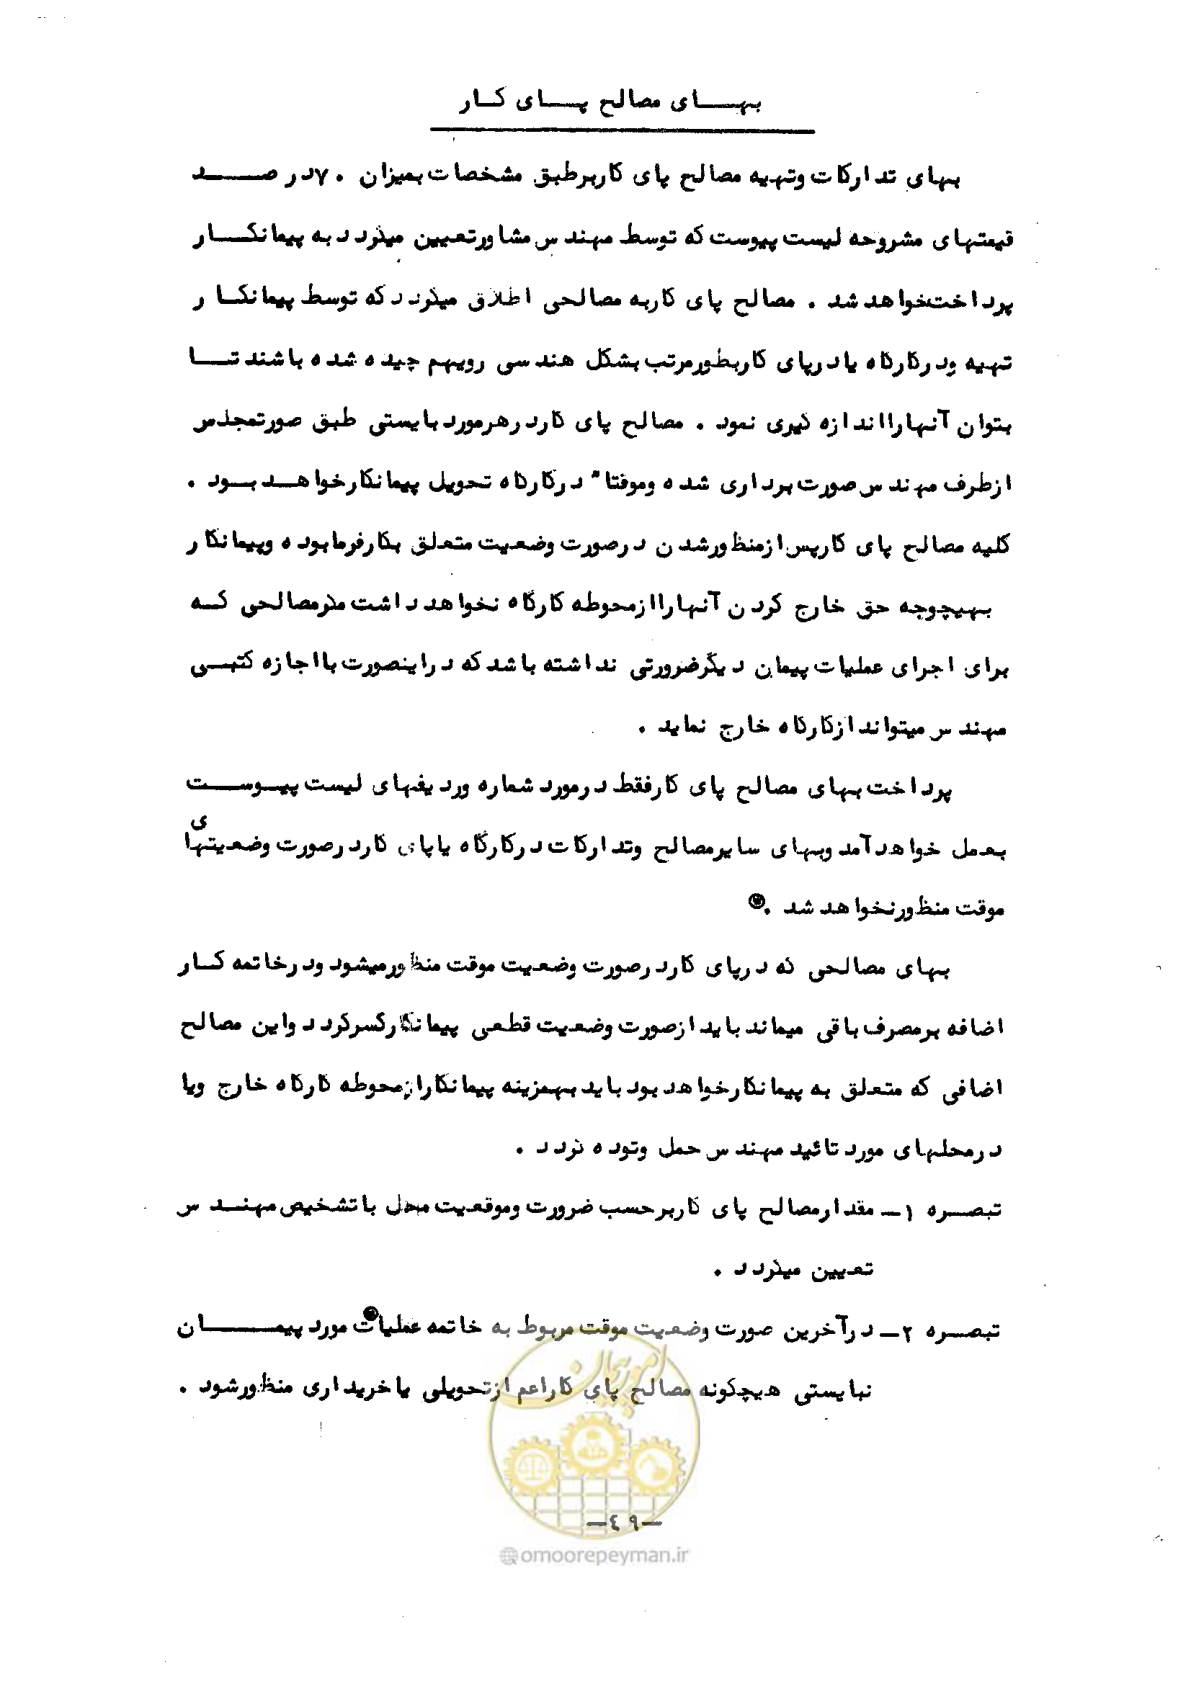 بهای مصالح پای کار
بهای تدارکات وتهیه مصالح پای کاربرطبق مشخصات بمیزان ۷۰درصد
قیمتهای مشروحه لیست پیوست که توسط مهندس مشاورتعیین میگردد به پیمانکار
پرداخت‌خواهد شد . مصالح پای کاربه مصالحی اطلاق میگردد که توسط پیمانکار
تهیه ودرکارگاه یا درپای کاربطورمرتب بشکل هندسی رویهم چیده شده باشند تا
بتوان آنهارا اندازه گیری نمود . مصالح پای کاردرهرمورد بایستی طبق صورتمجلس
ازطرف مهندس صورت برداری شده وموقتا" درکارگاه تحویل پیمانکارخواهد بود .
کلیه مصالح پای کارپس ازمنظورشدن درصورت وضعیت متعلق بکارفرمابوده وپیمانکار
بهیچوجه حق خارج کردن آنهارا ازمحوطه کارگاه نخواهد داشت مگرمصالحی که
برای اجرای عملیات پیمان دیگرضرورتی نداشته باشد که دراینصورت بااجازه کتبی
مهندس میتواند ازکارگاه خارج نماید .
پرداخت بهای مصالح پای کارفقط درمورد شماره وردیفهای لیست پیوست
بعمل خواهد آمد وبهای سایرمصالح وتدارکات درکارگاه یاپای کاردرصورت وضعیتهای
موقت منظورنخواهد شد .
بهای مصالحی که درپای کاردرصورت وضعیت موقت منظورمیشود ودرخاتمه کار
اضافه برمصرف باقی میماند باید ازصورت وضعیت قطعی پیمانکارکسرگردد واین مصالح
اضافی که متعلق به پیمانکارخواهد بود باید بهزینه پیمانکارازمحوطه کارگاه خارج ویا
درمحلهای مورد تائید مهندس حمل وتوده گردد .
تبصره ۱- مقدارمصالح پای کاربرحسب ضرورت وموقعیت محل باتشخیص مهندس
تعیین میگردد .
تبصره ۲- درآخرین صورت وضعیت موقت مربوط به خاتمه عملیات مورد پیمان
نبایستی هیچگونه مصالح پای کاراعم ازتحویلی یاخریداری منظورشود .
امور پیمان
-۴۹-
@omoorepeyman.ir